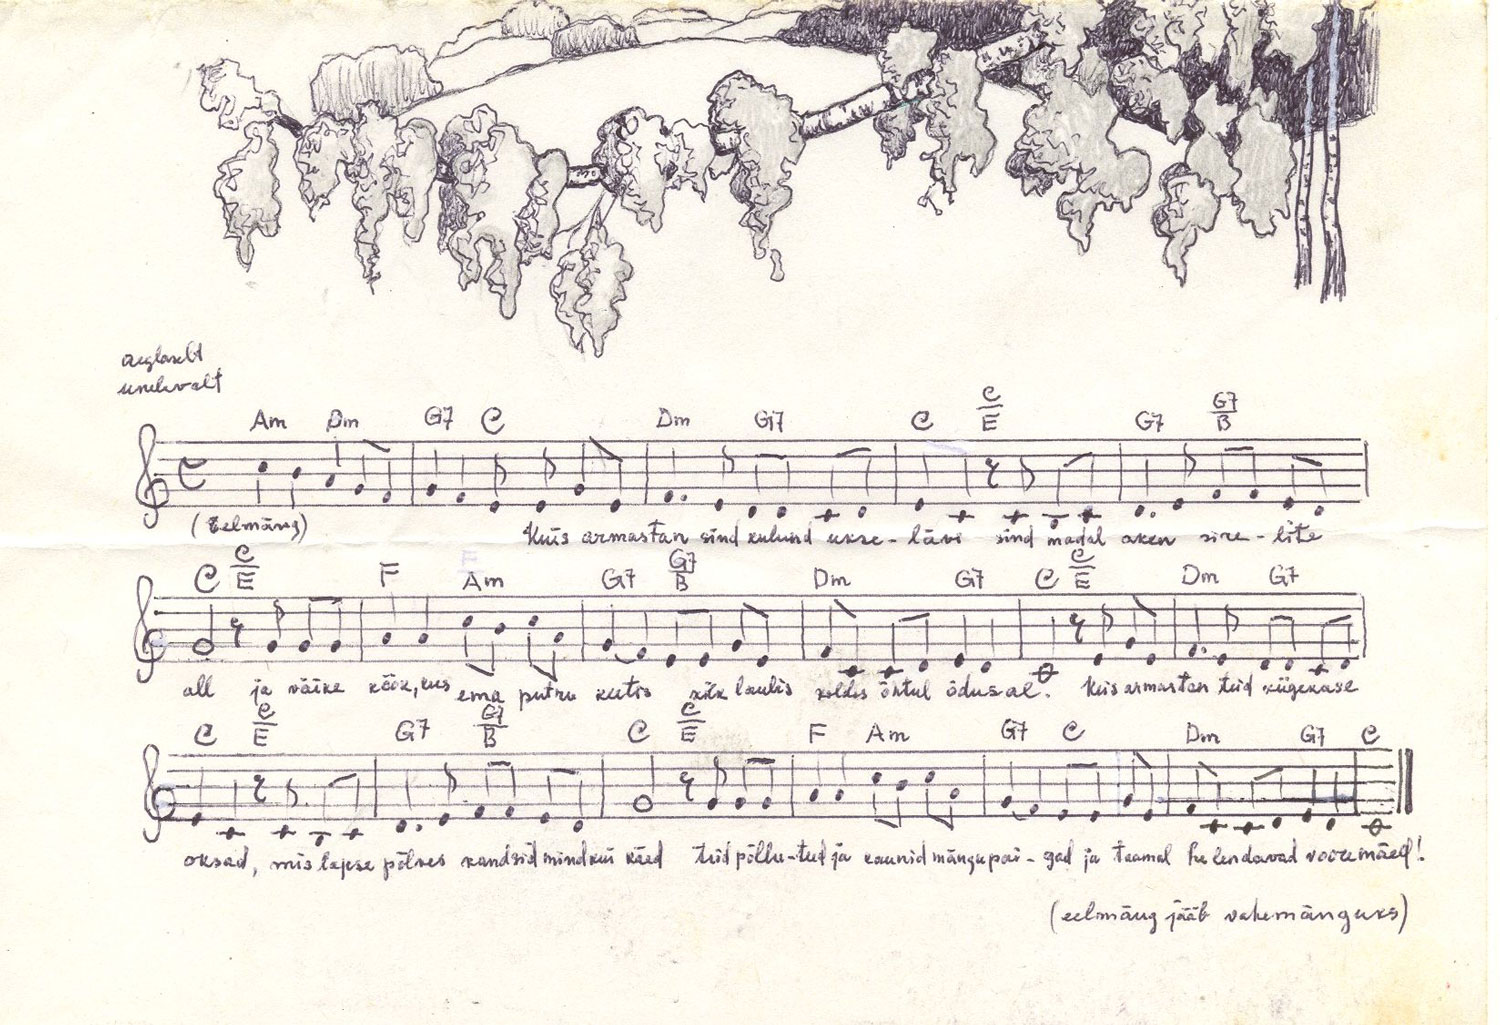 aeglaselt
unelevalt
Am Dm G7 C Dm G7 C C/E G7 G7/B
(Eelmäng) Kuis armastan sind kulund ukse-lävi sind madal aken sire-lite
C C/E F Am G7 G7/B Dm G7 C C/E Dm G7
all ja väike köök, kus ema putru keetis kõik laulis koldes õhtul õdusal. Kuis armastan teid kiigekase
C C/E G7 G7/B C C/E F Am G7 C Dm G7 C
oksad, mis lapse põlves kandsid mind kui käed teid põllu-teed ja kaunid mängupai-gad ja taamal helendavad vooremäed!
(eelmäng jääb vahemänguks)